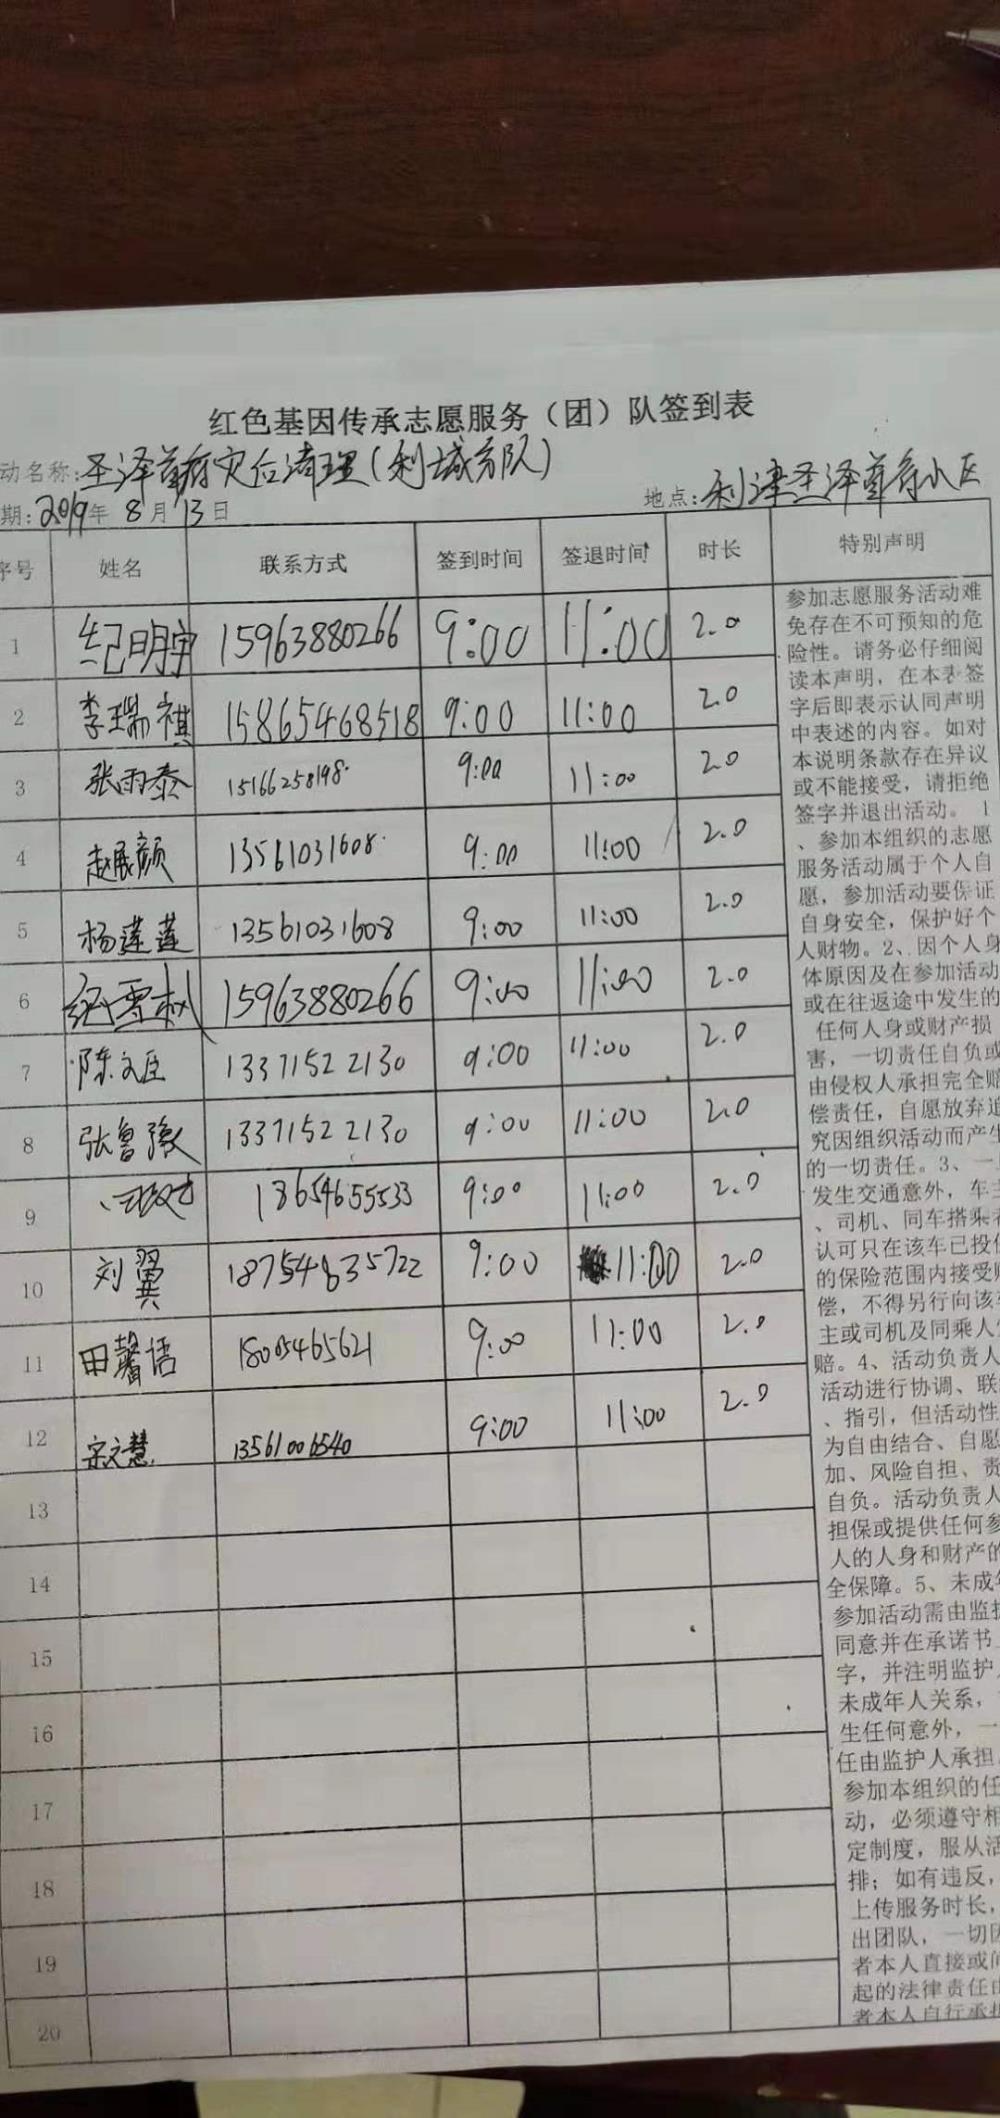 红色基因传承志愿服务（团）队签到表
动名称：圣泽尊府灾后清理（利城分队）
期：2019年 8月 13日 地点：利津圣泽尊府小区
序号 姓名 联系方式 签到时间 签退时间 时长 特别声明
1 纪明宇 15963880266 9:00 11:00 2.0
2 李瑞祺 15865468518 9:00 11:00 2.0
3 张雨泰 15166258198 9:00 11:00 2.0
4 赵展颜 13561031608 9:00 11:00 2.0
5 杨莲莲 13561031608 9:00 11:00 2.0
6 纪雪松 15963880266 9:00 11:00 2.0
7 陈文臣 13371522130 9:00 11:00 2.0
8 张鲁豫 13371522130 9:00 11:00 2.0
9 18654655533 9:00 11:00 2.0
10 刘翼 18754835722 9:00 11:00 2.0
11 田馨语 18005465621 9:00 11:00 2.0
12 宋文慧 13561006540 9:00 11:00 2.0
13
14
15
16
17
18
19
20
参加志愿服务活动难
免存在不可预知的危
险性。请务必仔细阅
读本声明，在本表签
字后即表示认同声明
中表述的内容。如对
本说明条款存在异议
或不能接受，请拒绝
签字并退出活动。 1
、参加本组织的志愿
服务活动属于个人自
愿，参加活动要保证
自身安全，保护好个
人财物。2、因个人身
体原因及在参加活动
或在往返途中发生的
任何人身或财产损
害，一切责任自负或
由侵权人承担完全赔
偿责任，自愿放弃追
究因组织活动而产生
的一切责任。3、一
发生交通意外，车主
、司机、同车搭乘者
认可只在该车已投保
的保险范围内接受赔
偿，不得另行向该车
主或司机及同乘人
赔。4、活动负责人
活动进行协调、联
、指引，但活动性
为自由结合、自愿
加、风险自担、责
自负。活动负责人
担保或提供任何参
人的人身和财产的
全保障。5、未成年
参加活动需由监护
同意并在承诺书
字，并注明监护
未成年人关系，
生任何意外，一
任由监护人承担
参加本组织的任
动，必须遵守相
定制度，服从活
排；如有违反，
上传服务时长，
出团队，一切因
者本人直接或间
起的法律责任由
者本人自行承担